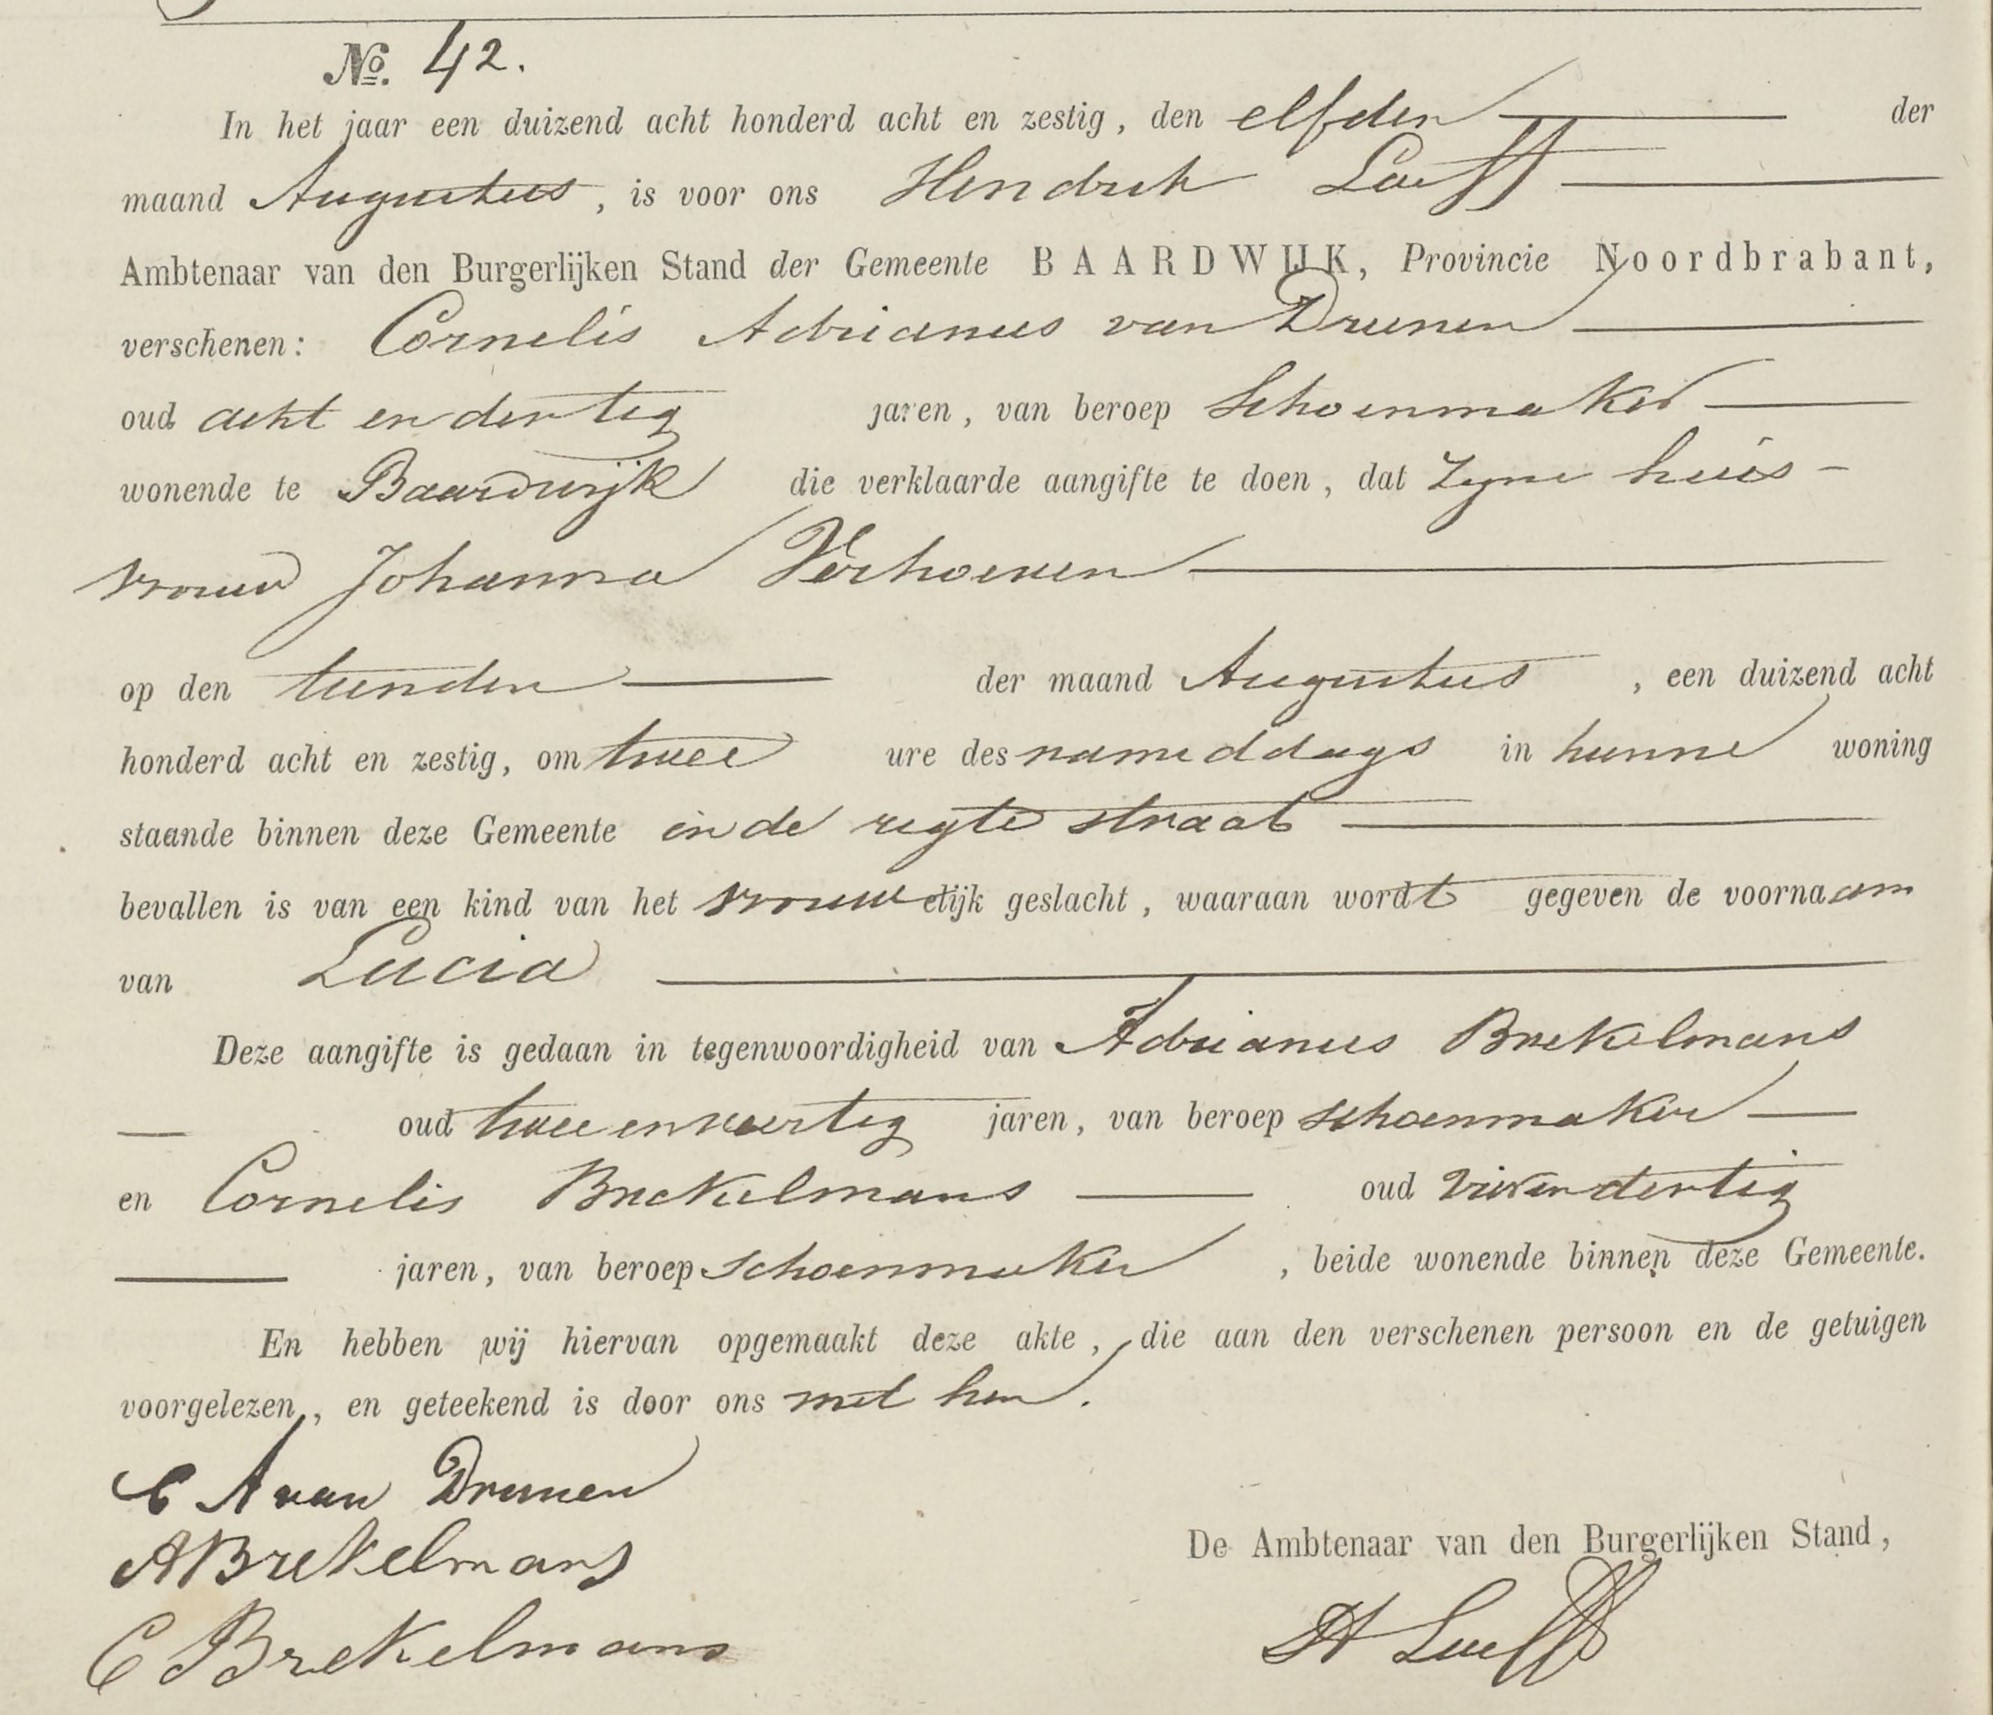 No. 42.
In het jaar een duizend acht honderd acht en zestig, den elfden der
maand Augustus, is voor ons Hendrik Loeff
Ambtenaar van den Burgerlijken Stand der Gemeente BAARDWIJK, Provincie Noordbrabant,
verschenen: Cornelis Adrianus van Drunen
oud acht en dertig jaren, van beroep Schoenmaker
wonende te Baardwijk die verklaarde aangifte te doen, dat zyne huis-
vrouw Johanna Verhoeven
op den tienden der maand Augustus, een duizend acht
honderd acht en zestig, om twee ure des namiddags in hunne woning
staande binnen deze Gemeente in de regte straat
bevallen is van een kind van het vrouwelijk geslacht, waaraan wordt gegeven de voornaam
van Lucia
Deze aangifte is gedaan in tegenwoordigheid van Adrianus Brekelmans
oud twee en veertig jaren, van beroep schoenmaker
en Cornelis Brekelmans oud vier en dertig
jaren, van beroep schoenmaker, beide wonende binnen deze Gemeente.
En hebben wij hiervan opgemaakt deze akte, die aan den verschenen persoon en de getuigen
voorgelezen, en geteekend is door ons met hen.
C A van Drunen
A Brekelmans
De Ambtenaar van den Burgerlijken Stand,
C Brekelmans
H Loeff